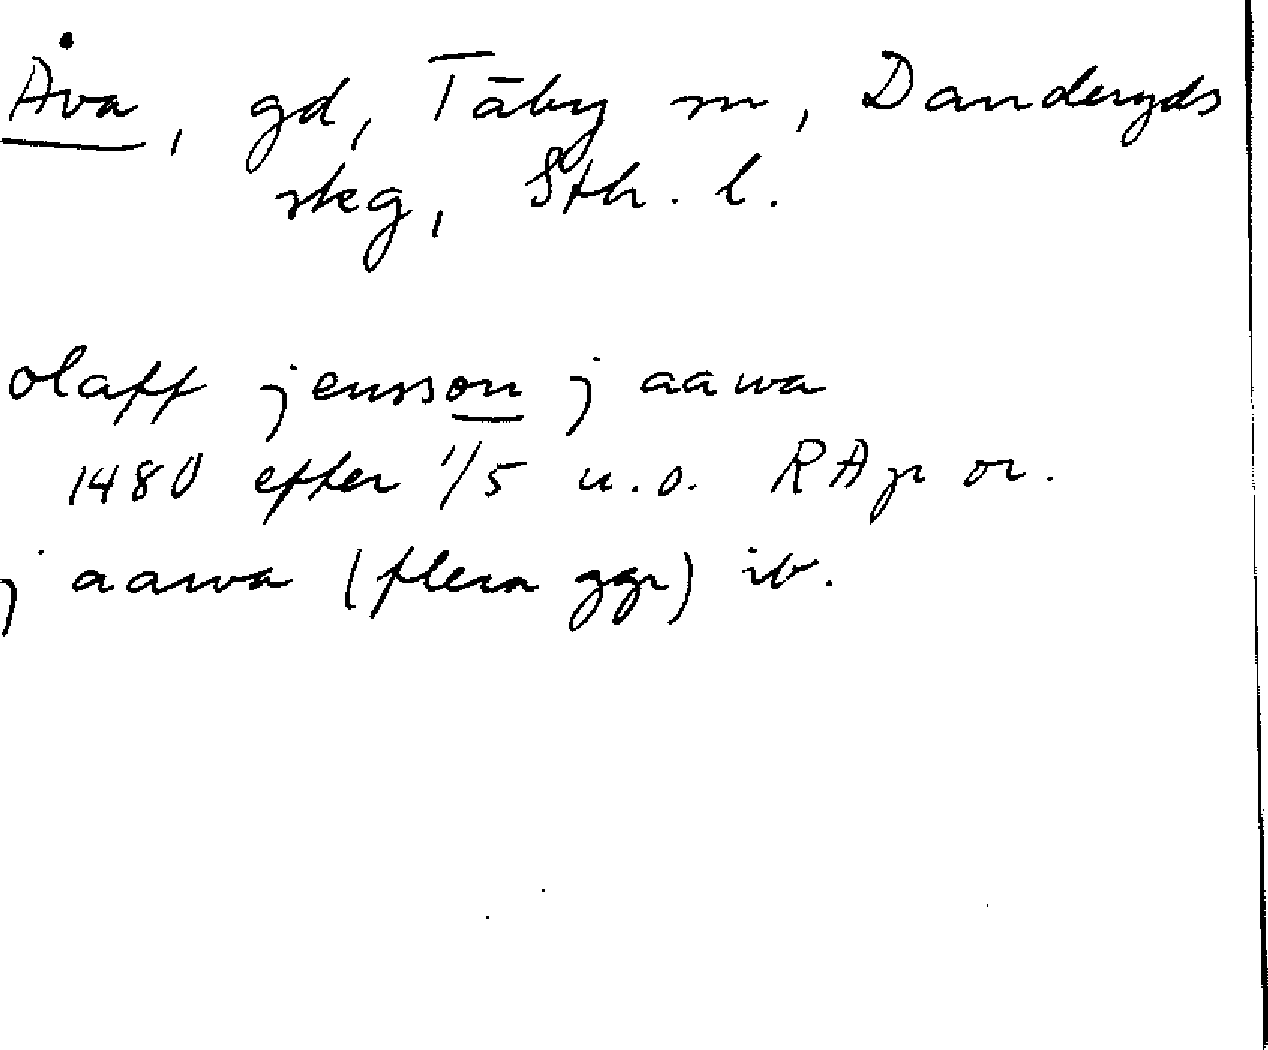 Åva, gd, Täby sn, Danderyds
skg, Sth. l.
olaff jensson j aawa
1480 efter 1/5 u.o. RAp or.
j aawa (flera ggr) ib.